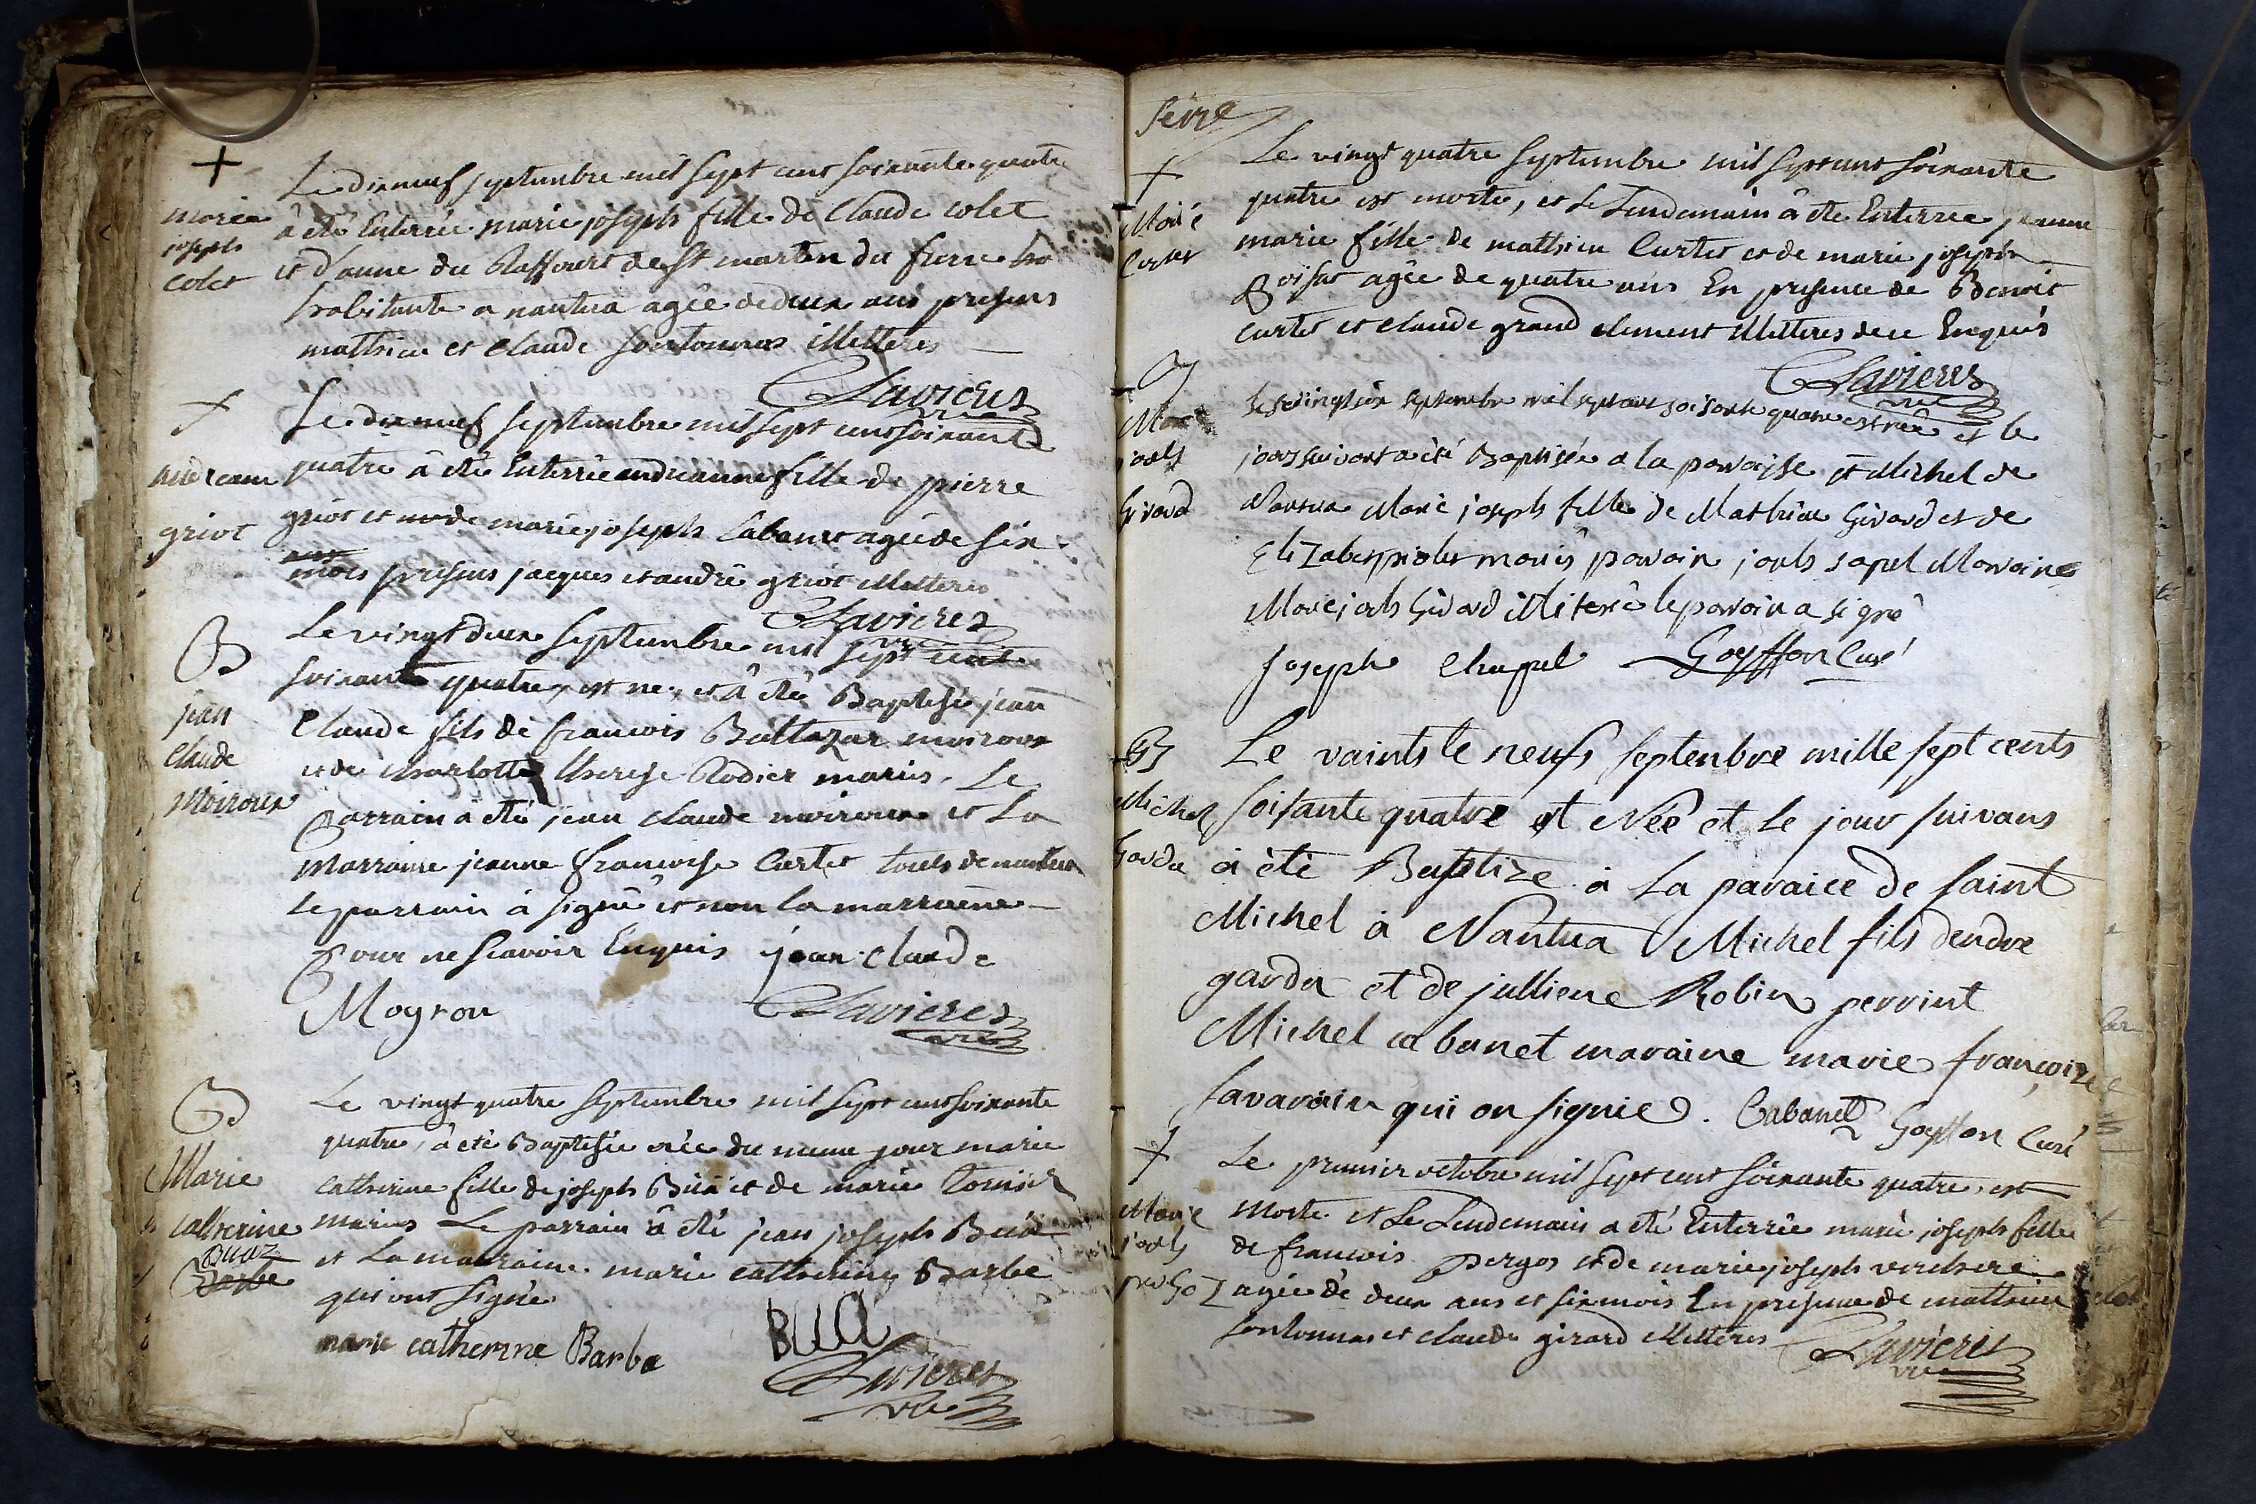 +
marie
joseph
colet
Le dixneuf septembre mil sept cent soixante quatre
à été Enterrée marie joseph fille de Claude colet
et d'anne du Raffour de St martin du frene
habitante a nantua agée de deux ans presens
mathieu et Claude illitteres
Clavieres
vre
+
andreanne
griot
Le dixneuf septembre mil sept cent soixante
quatre à été Enterrée andreanne fille de pierre
griot et de marie joseph Cabanet agée de six
mois presens jacques et andré griot illitteres
Clavieres
vre
B
jean
claude
moiroux
Le vingt deux septembre mil sept cent
soixante quatre, est ne, et à été Baptisé jean
Claude fils de francois Baltazar moiroux
et de charlotte therese Rodier mariés. Le
Parrain à été jean claude moiroux et La
Marraine jeanne francoise Curtet touts de nantua
le parrain à signé et non la marraine
Pour ne scavoir Enquis jean claude
Moyrou
Clavieres
vre
B
Marie
catherine
Buaz
Barbe
Le vingt quatre septembre mil sept cent soixante
quatre, à été Baptisée née du meme jour marie
catherine fille de joseph Bua et de marie
mariés Le parrain à été jean joseph Bua
et La marraine marie catherine Barbe
qui ont signé
marie catherine Barbe
BUA
Clavieres
vre
+
Marie
Curtet
Le vingt quatre septembre mil sept cent soixante
quatre est morte, et Le Lendemain à été Enterrée jeanne
marie fille de mathieu Curtet et de marie joseph
agée de quatre ans En presence de Benoit
curtet et claude grand clement illitteres de ce Enquis
Clavieres
vre
B
Marie
josh
Girard
le vingtsix septembre mil sept cent soisante quatre est née et le
jour suivant a été Baptisée a la paroisse st Michel de
Nantua Marie joseph fille de Mathieu Girard et de
Elizabet mariés parain josh Marraine
Marie josh Girard illiteré le parain a signé
joseph Chapel Goyffon Curé
B
Michel
Garda
Le vaints le neufs septenbre mille sept cents
soisante quatre et Néé et le jour suivans
à été Baptize à La paraice de saint
Michel à Nantua Michel fils dendre
garda et de julliene Robin perrint
Michel cabanet maraine marie françoize
savarain qui on signie. Cabanet Goyffon Curé
+
Marie
josh
Le premier octobre mil sept cent soixante quatre, est
Morte et Le Lendemain a été Enterrée marie joseph fille
de francois Pergos et de marie joseph verchere
agée de deux ans et six mois En presence de mathieu
et claude girard illitteres
Clavieres
vre